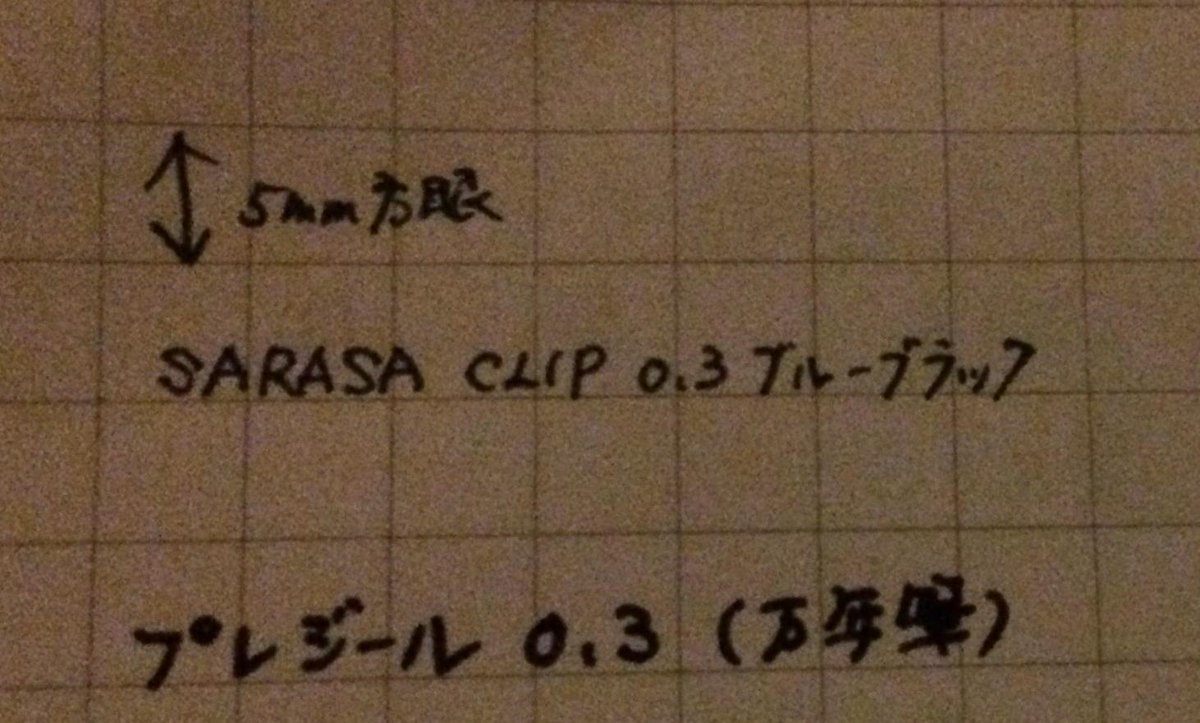 5mm方眼
SARASA CLIP 0.3 ブルーブラック
プレジール 0.3 (万年筆)